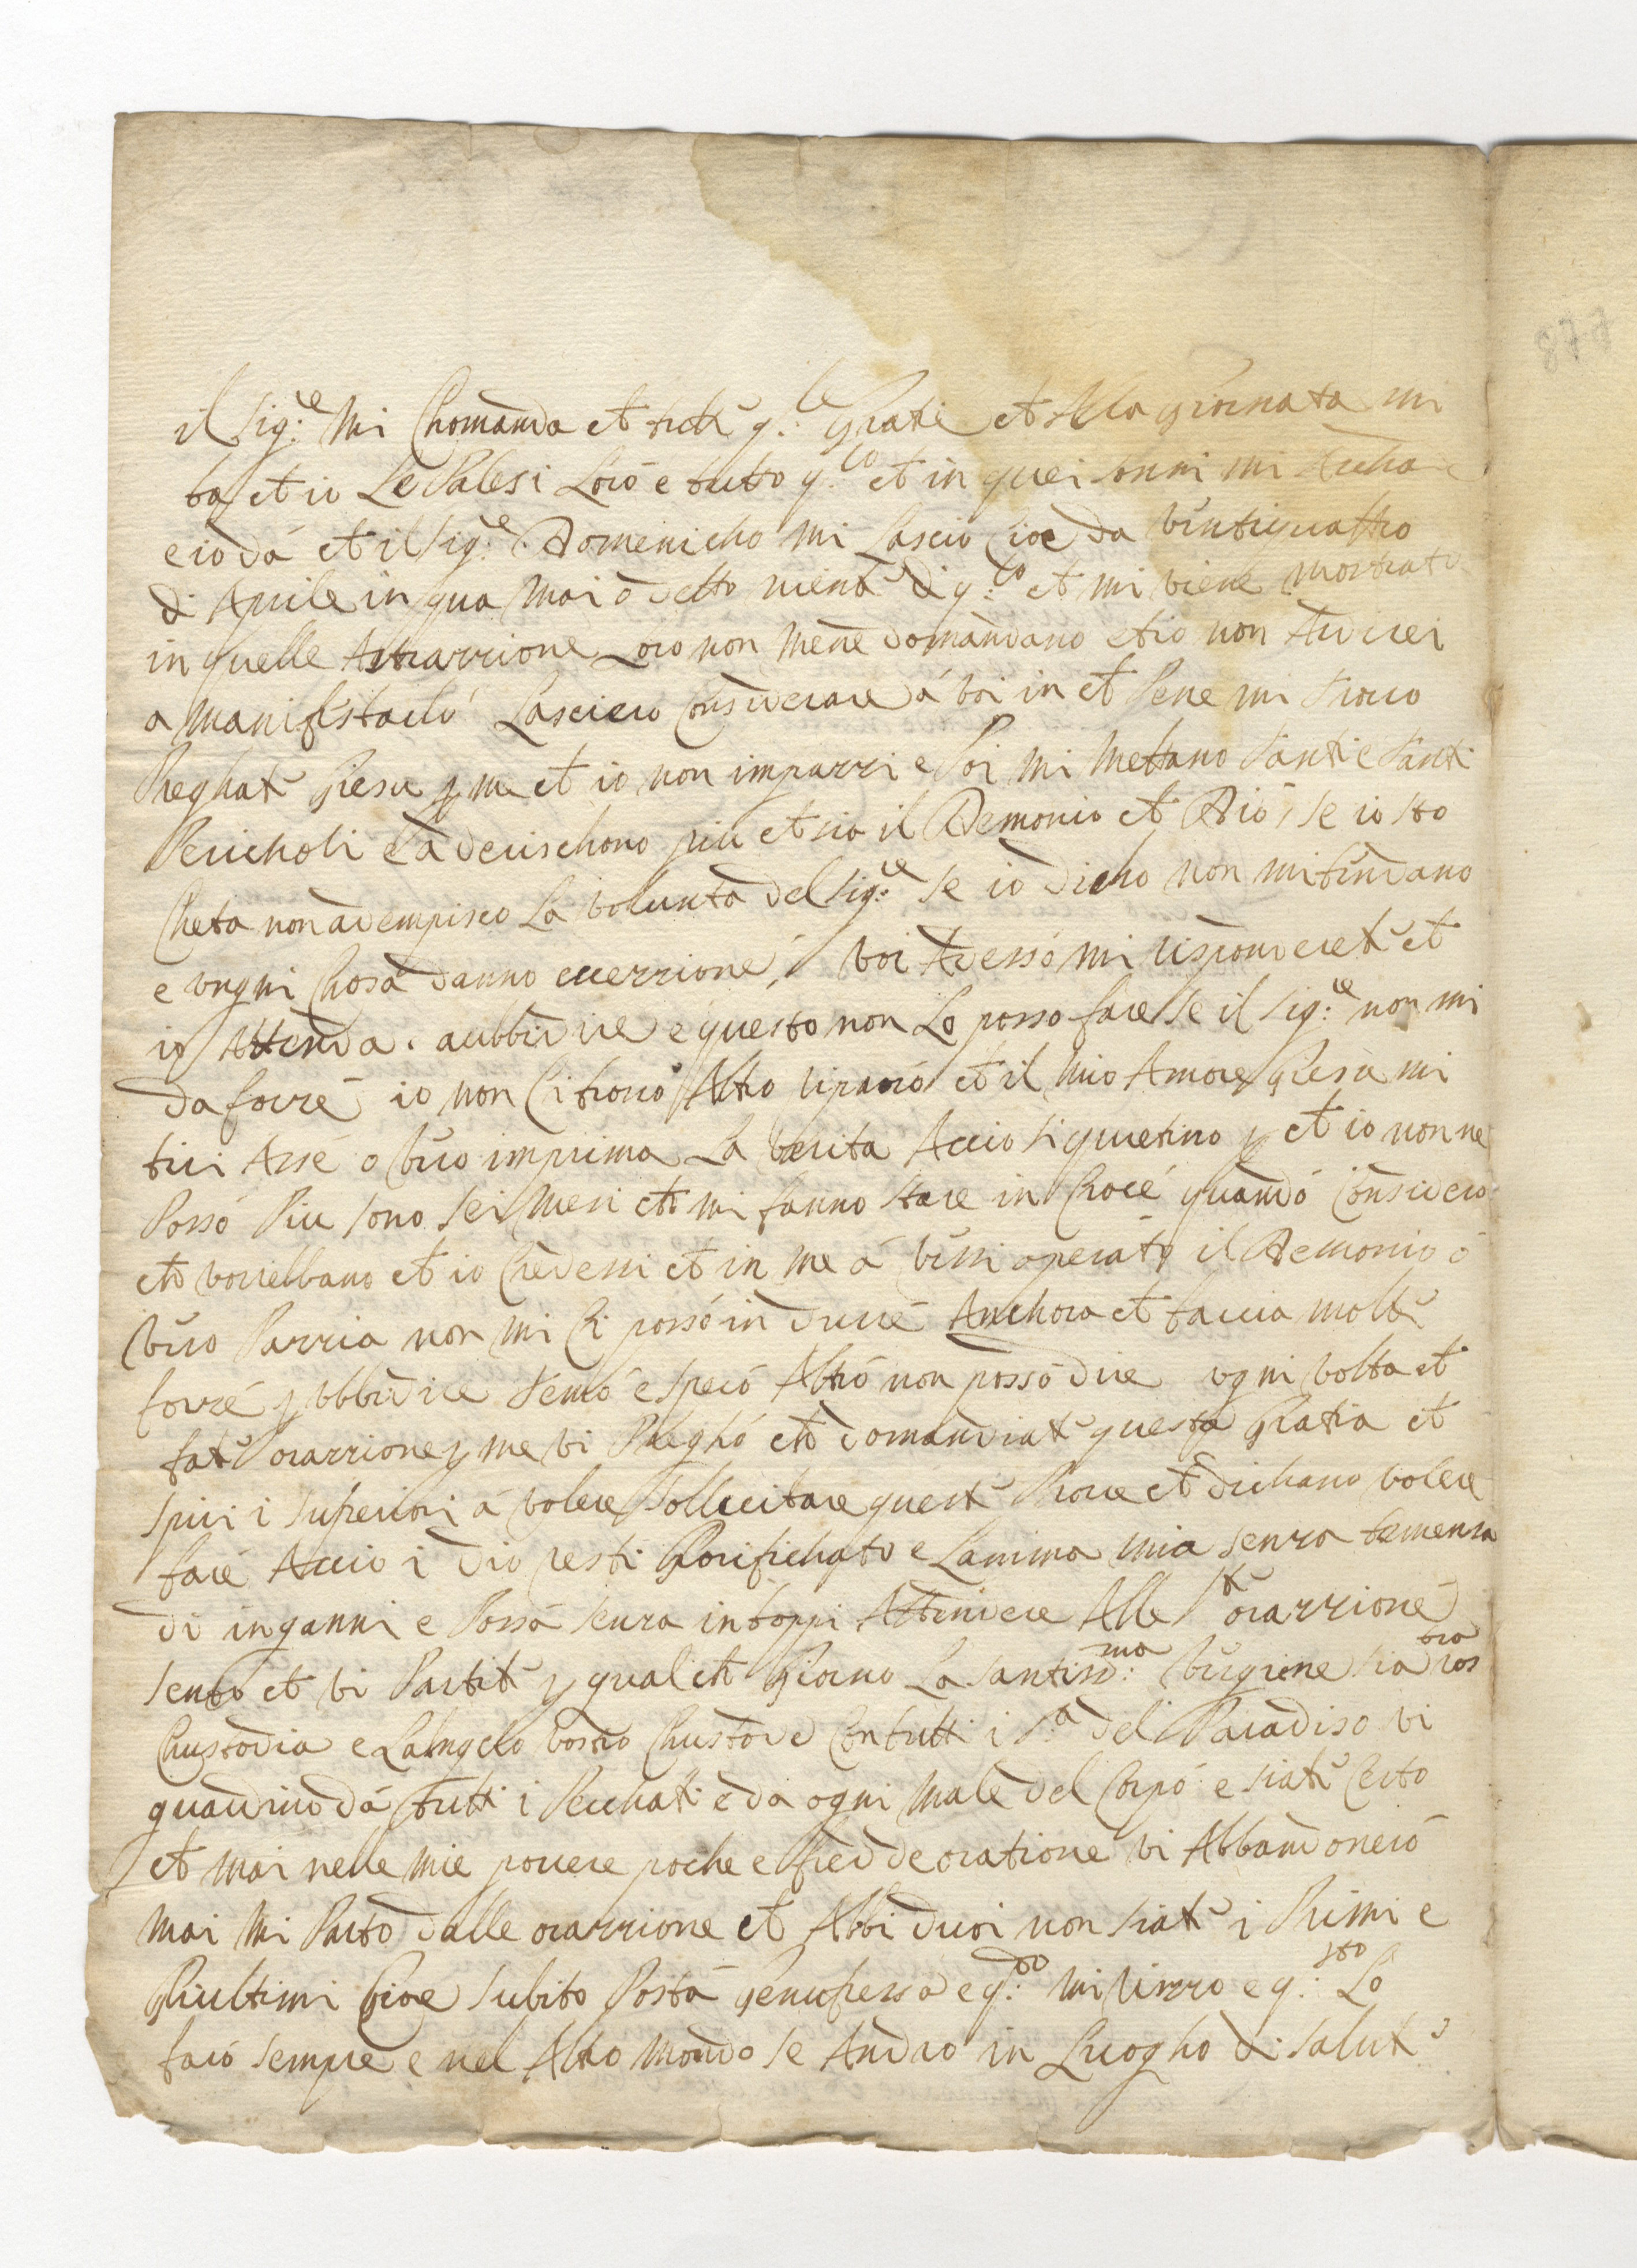 il Sig:re mi Chomanda et tutte q:le Gratie et Alla giornata mi
fa et io Le Palesi Loro e tutto q:to et in quei
e io da et il Sig:re Domenicho mi Lascio Cioe da Vintiquattro
di Aprile in qua mai o detto niena di q:to et mi viene mostrato
in quelle Astrazzione Loro non mene domandano et io non Ardirei
a manifestarlo Lasciero Considerare á voi in et Pene mi trovo
Preghate Giesu p me et io non impazzi e Poi mi mettano Santi e Santi
Pericholi e aderischono piu et sia il Demonio et Dio, se io sto
Cheta non adempisco La volunta del Sig:re se io dicho non mitendano
e ungni Chosa danno eccezzione, voi Adesso mi risponderete et
io Attenda. aubbidire e questo non Lo posso fare se il Sig:re non mi
da forze io non Ci trovo Altro riparo et il mio Amore Giesu mi
tiri Asse o vero imprima La verita Accio si quietino p et io non ne
Posso Piu sono sei mesi che mi fanno stare in Croce quando Considero
che vorrebbano et io Credessi et in me á vessi operato il Demonio ó
vero Pazzia non mi Ci posso in durre Anchora et faccia molte
forze p ubbidire temo e spero Altro non posso dire ugni volta et
fate orazzione p me vi Pregho che domandiate questa Gratia et
spiri i Superiori á volere Sollecitare queste Prove et dichano volere
fare Accio i dio resti Glorifichato e Lanima mia senza temenza
di inganni e Possa senza intoppi Attendere Alle Ste orazzione
Sento et vi Partite p qualche Giorno La Santiss:ma Vergine sia vostra
Chustodia e Langelo vostro Chustode Con tutti i S:ti del Paradiso vi
guardino dá tutti i Pecchati e da ogni male del Corpo e siate Certo
et mai nelle mie povere poche e fredde oratione vi Abbandonero
mai mi Parto dalle orazzione et Abbi duoi non siate i Primi e
Gliultimi Cioe subito Posta Genuflessa e q:do mi rizzo e q:sto Lo
faro sempre e nel Altro mondo se Andro in Luogho di salute